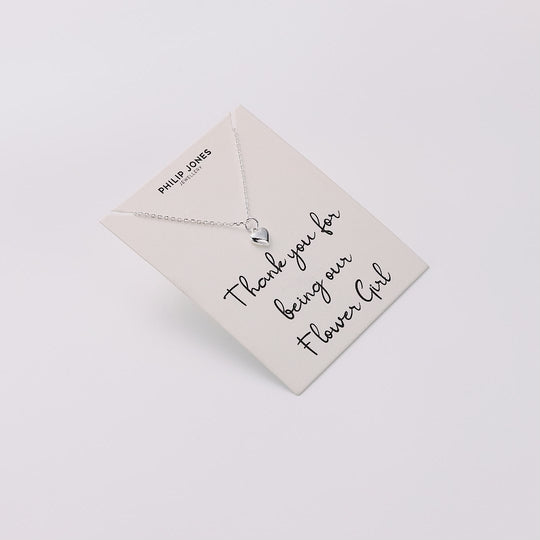 PHILIP JONES
JEWELLERY
Thank you for
being our
Flower Girl